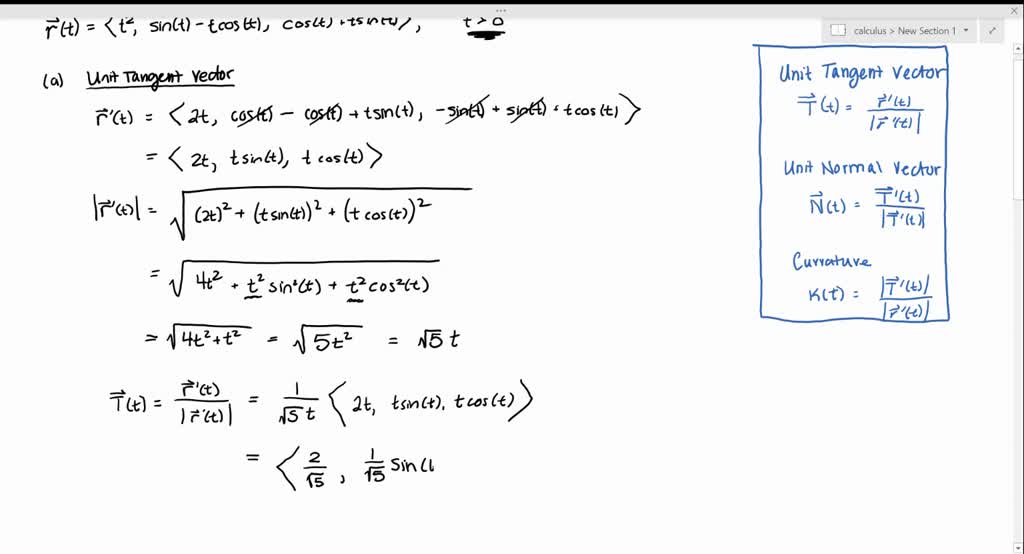 r⃗(t) = ⟨t², sin(t) - t cos(t), cos(t) + t sin(t)⟩, t > 0
calculus > New Section 1
(a) Unit Tangent Vector
r⃗'(t) = ⟨2t, cos(t) - cos(t) + t sin(t), -sin(t) + sin(t) + t cos(t)⟩
= ⟨2t, t sin(t), t cos(t)⟩
|r⃗'(t)| = √((2t)² + (t sin(t))² + (t cos(t))²)
= √(4t² + t² sin²(t) + t² cos²(t))
= √(4t² + t²) = √(5t²) = √5 t
T⃗(t) = r⃗'(t) / |r⃗'(t)| = 1/(√5 t) ⟨2t, t sin(t), t cos(t)⟩
= ⟨2/√5, 1/√5 sin(t
Unit Tangent Vector
T⃗(t) = r⃗'(t) / |r⃗'(t)|
Unit Normal Vector
N⃗(t) = T⃗'(t) / |T⃗'(t)|
Curvature
K(t) = |T⃗'(t)| / |r⃗'(t)|